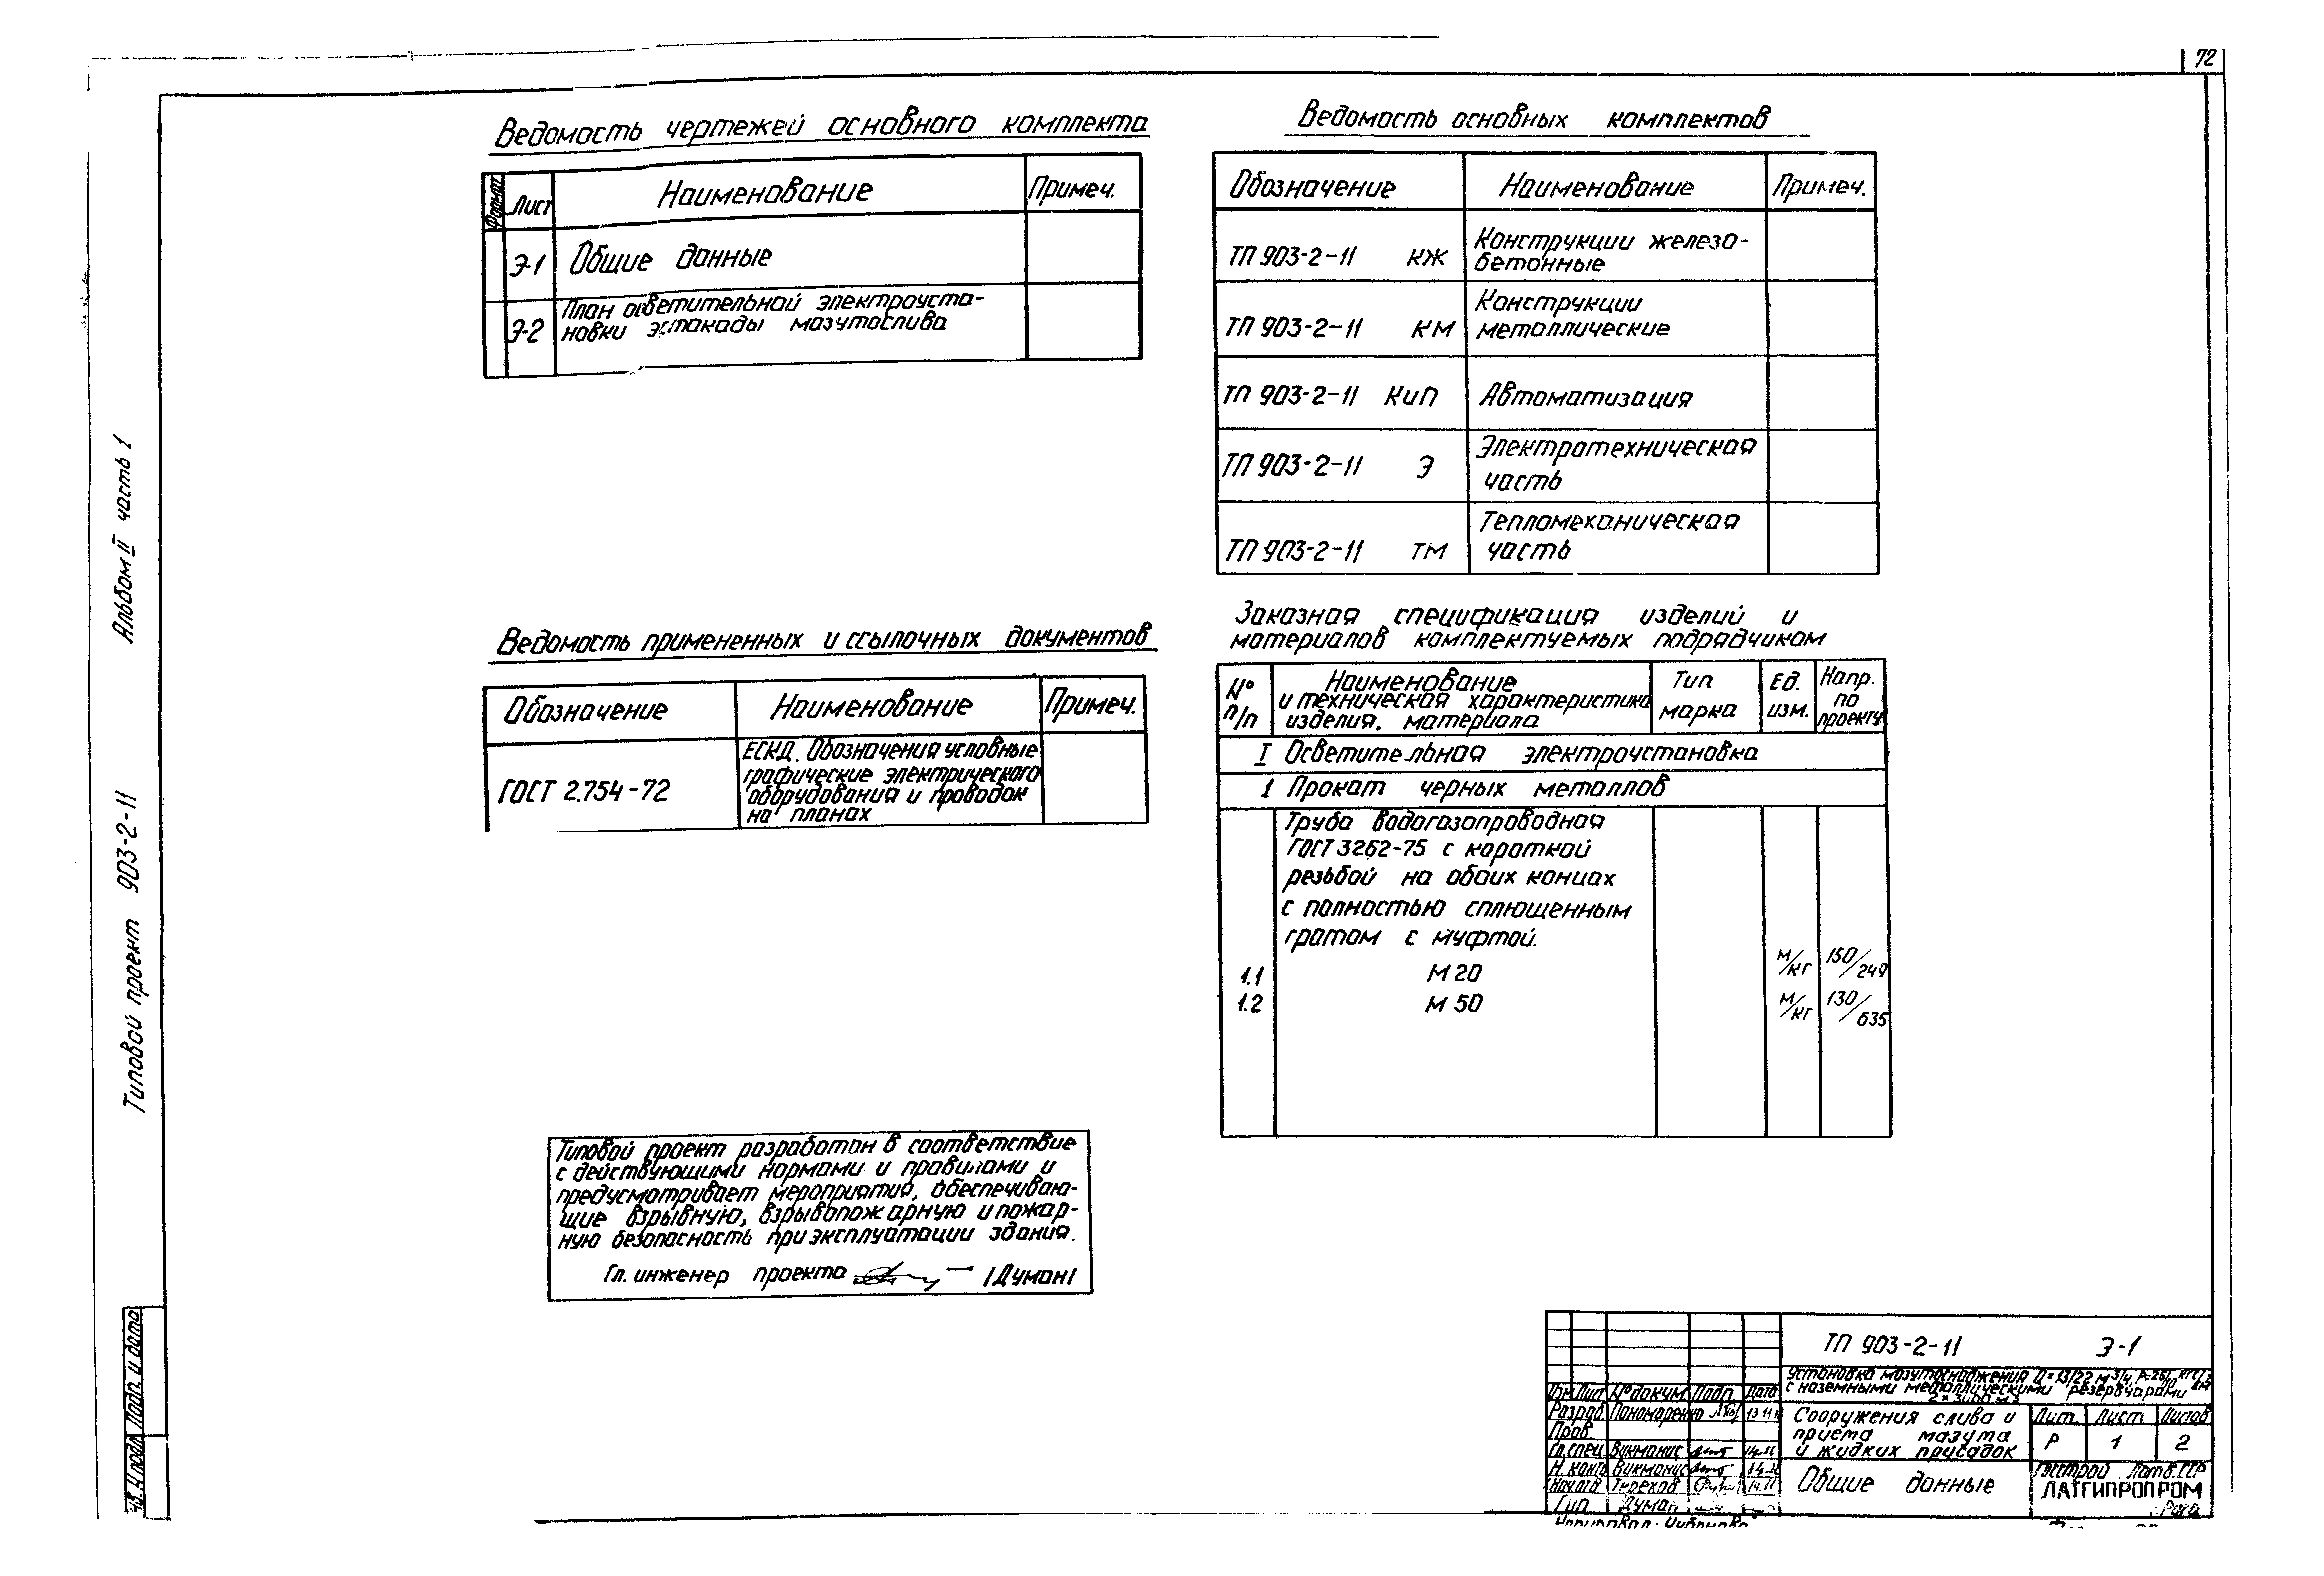 72
Альбом II часть 1
Типовой проект 903-2-11
Подп. и дата
Ведомость чертежей основного комплекта
Формат Лист Наименование Примеч.
Э-1 Общие данные
Э-2 План осветительной электроуста-
новки эстакады мазутослива
Ведомость примененных и ссылочных документов
Обозначение Наименование Примеч.
ГОСТ 2.754-72 ЕСКД. Обозначения условные
графические электрического
оборудования и проводок
на планах
Типовой проект разработан в соответствие
с действующими нормами и правилами и
предусматривает мероприятия, обеспечиваю-
щие взрывную, взрывопожарную и пожар-
ную безопасность при эксплуатации здания.
Гл. инженер проекта /Думан/
Ведомость основных комплектов
Обозначение Наименование Примеч.
ТП 903-2-11 КЖ Конструкции железо-
бетонные
ТП 903-2-11 КМ Конструкции
металлические
ТП 903-2-11 КиП Автоматизация
ТП 903-2-11 Э Электротехническая
часть
ТП 903-2-11 ТМ Тепломеханическая
часть
Заказная спецификация изделий и
материалов комплектуемых подрядчиком
№ п/п Наименование и техническая характеристика изделия, материала Тип марка Ед. изм. Напр. по проекту
I Осветительная электроустановка
1 Прокат черных металлов
Труба водогазопроводная
ГОСТ 3262-75 с короткой
резьбой на обоих концах
с полностью сплющенным
гратом с муфтой.
1.1 М 20 м/кг 150/249
1.2 М 50 м/кг 130/635
ТП 903-2-11 Э-1
Установка мазутоснабжения Q=13/22 м³/ч,
с наземными металлическими резервуарами
Изм. Лист № докум. Подп. Дата
Разраб. Пономаренко
Пров.
Гл. спец. Викманис
Н. контр. Викманис
Нач. отд. Терехов
Гип Думан
Сооружения слива и
приема мазута
и жидких присадок
Лит. Лист Листов
Р 1 2
Общие данные
Госстрой Латв. ССР
ЛАТГИПРОПРОМ
г. Рига